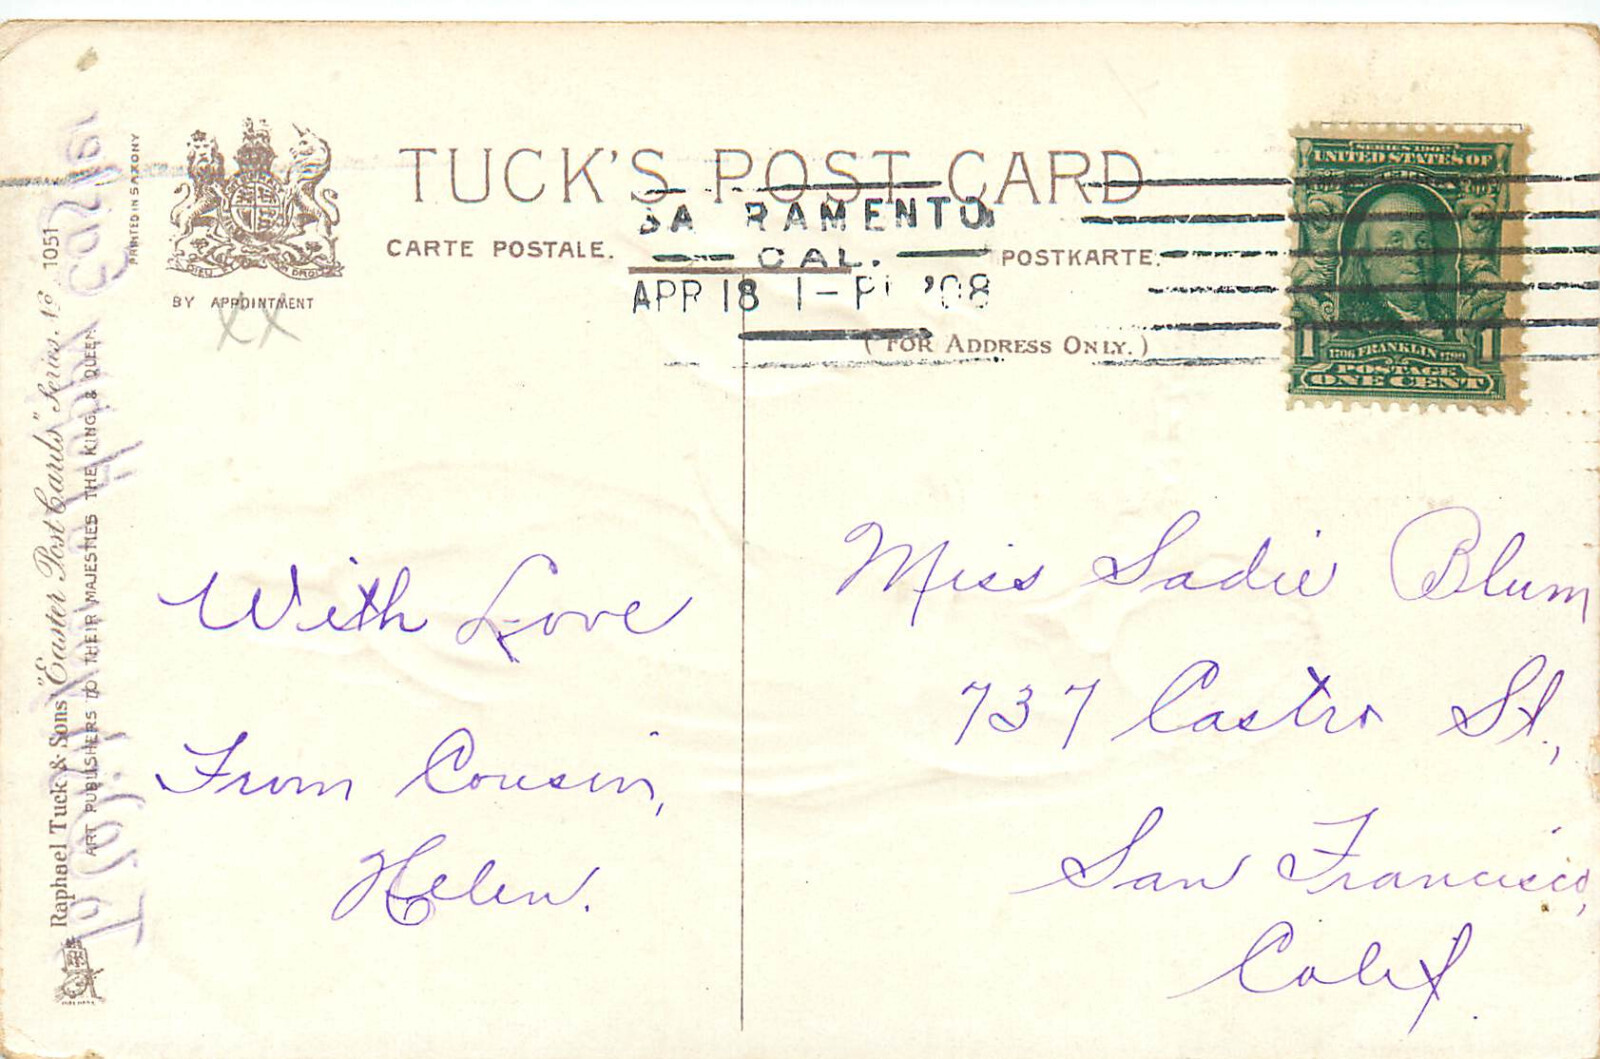 TUCK'S POST CARD
CARTE POSTALE.
POSTKARTE.
(FOR ADDRESS ONLY.)
BY APPOINTMENT
PRINTED IN SAXONY
SA RAMENTO
CAL.
APR 18 1-P '08
SERIES 1902
UNITED STATES OF
1706 FRANKLIN 1790
1 1
POSTAGE
ONE CENT
XX
With Love
From Cousin,
Helen.
Miss Sadie Blum
737 Castro St.,
San Francisco,
Calif.
Raphael Tuck & Sons "Easter Post Cards" Series No 1051
ART PUBLISHERS TO THEIR MAJESTIES THE KING & QUEEN.